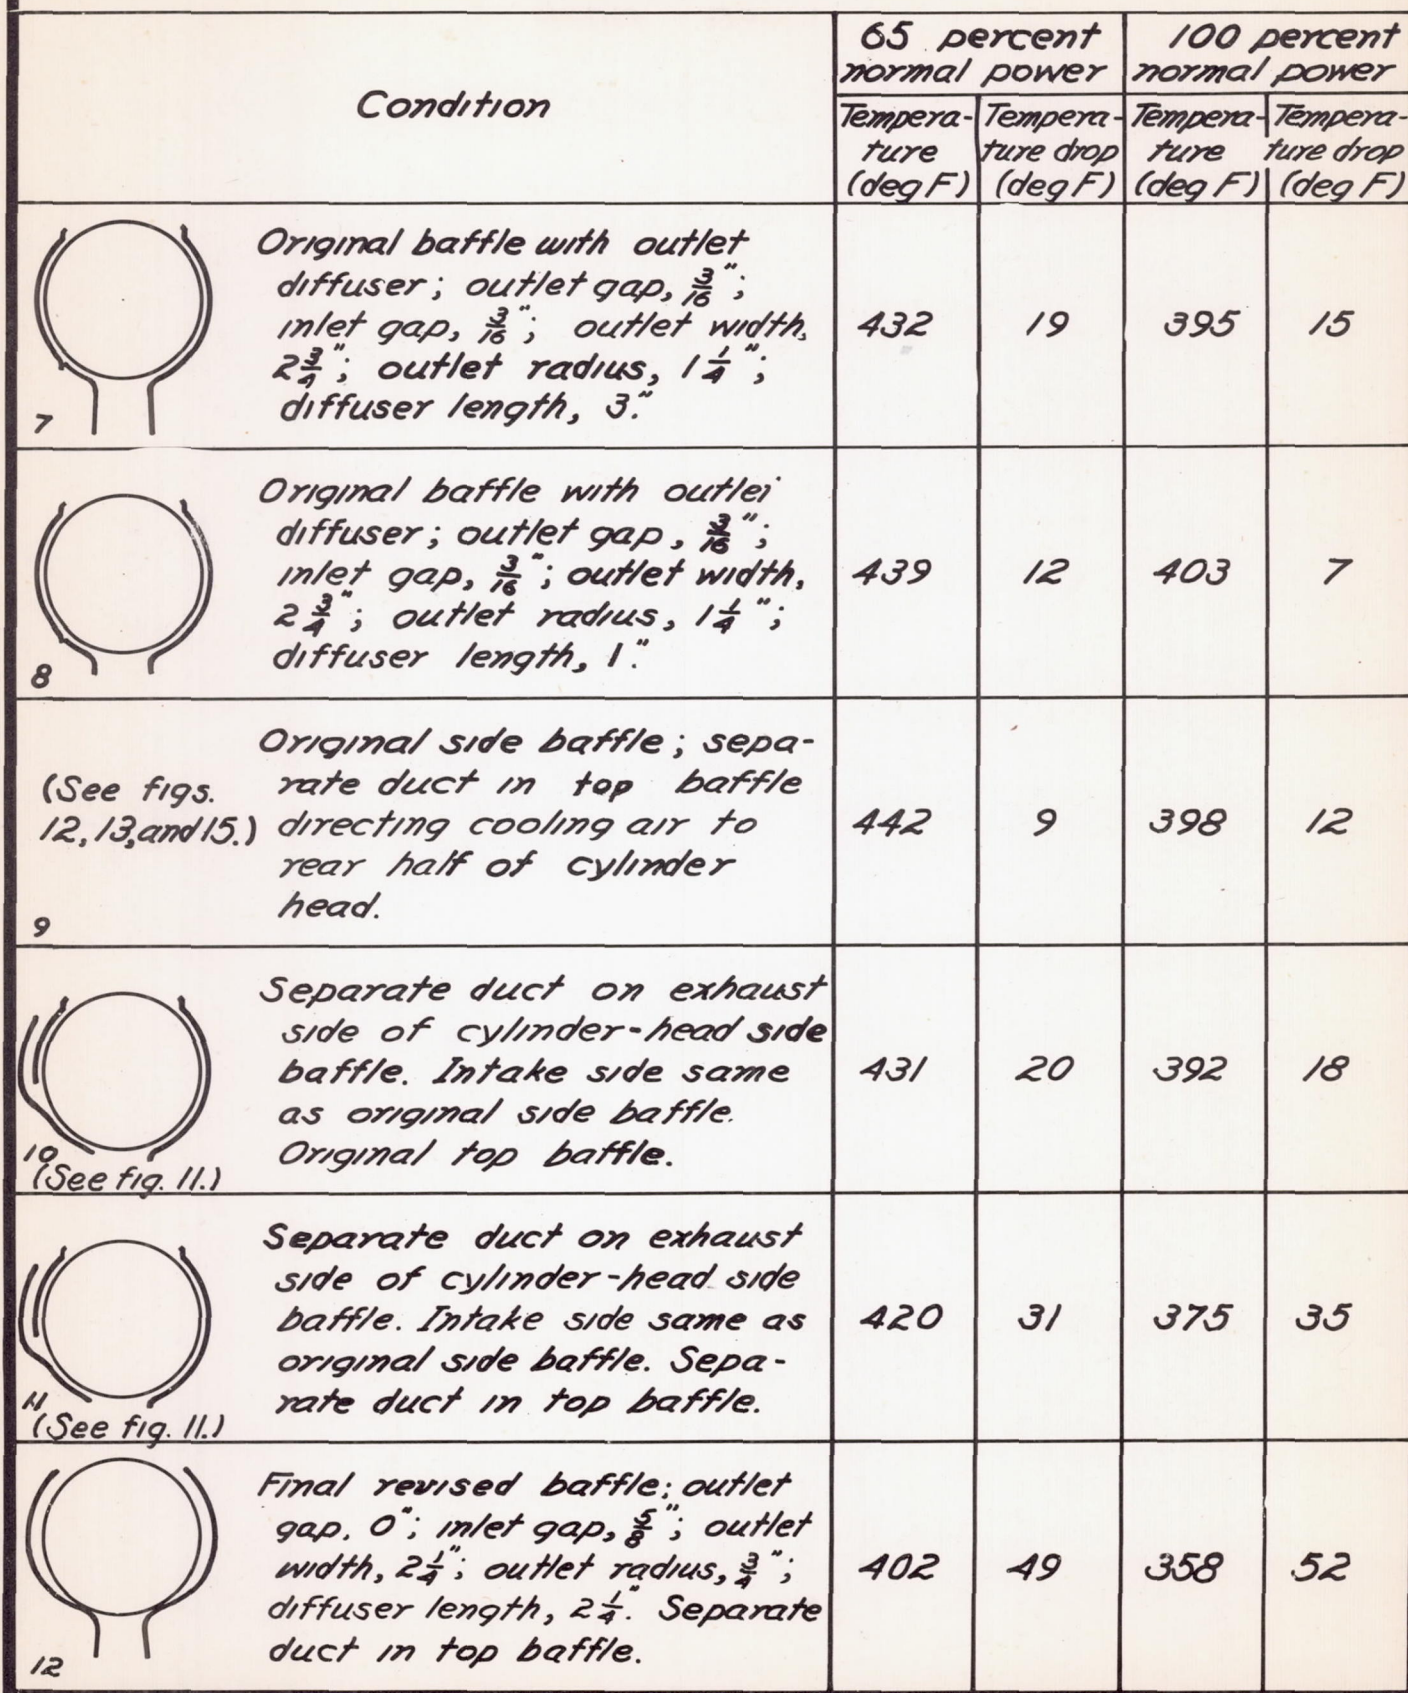 65 percent normal power
100 percent normal power
Condition
Tempera-ture (deg F)
Tempera-ture drop (deg F)
Tempera-ture (deg F)
Tempera-ture drop (deg F)
7
Original baffle with outlet
diffuser; outlet gap, 3/16";
inlet gap, 3/16"; outlet width,
2 3/4"; outlet radius, 1 1/4";
diffuser length, 3."
432 19 395 15
8
Original baffle with outlet
diffuser; outlet gap, 3/16";
inlet gap, 3/16"; outlet width,
2 3/4"; outlet radius, 1 1/4";
diffuser length, 1."
439 12 403 7
(See figs.
12, 13, and 15.)
9
Original side baffle; sepa-
rate duct in top baffle
directing cooling air to
rear half of cylinder
head.
442 9 398 12
10
(See fig. 11.)
Separate duct on exhaust
side of cylinder-head side
baffle. Intake side same
as original side baffle.
Original top baffle.
431 20 392 18
11
(See fig. 11.)
Separate duct on exhaust
side of cylinder-head side
baffle. Intake side same as
original side baffle. Sepa-
rate duct in top baffle.
420 31 375 35
12
Final revised baffle; outlet
gap, 0"; inlet gap, 5/8"; outlet
width, 2 1/4"; outlet radius, 3/4";
diffuser length, 2 1/4". Separate
duct in top baffle.
402 49 358 52